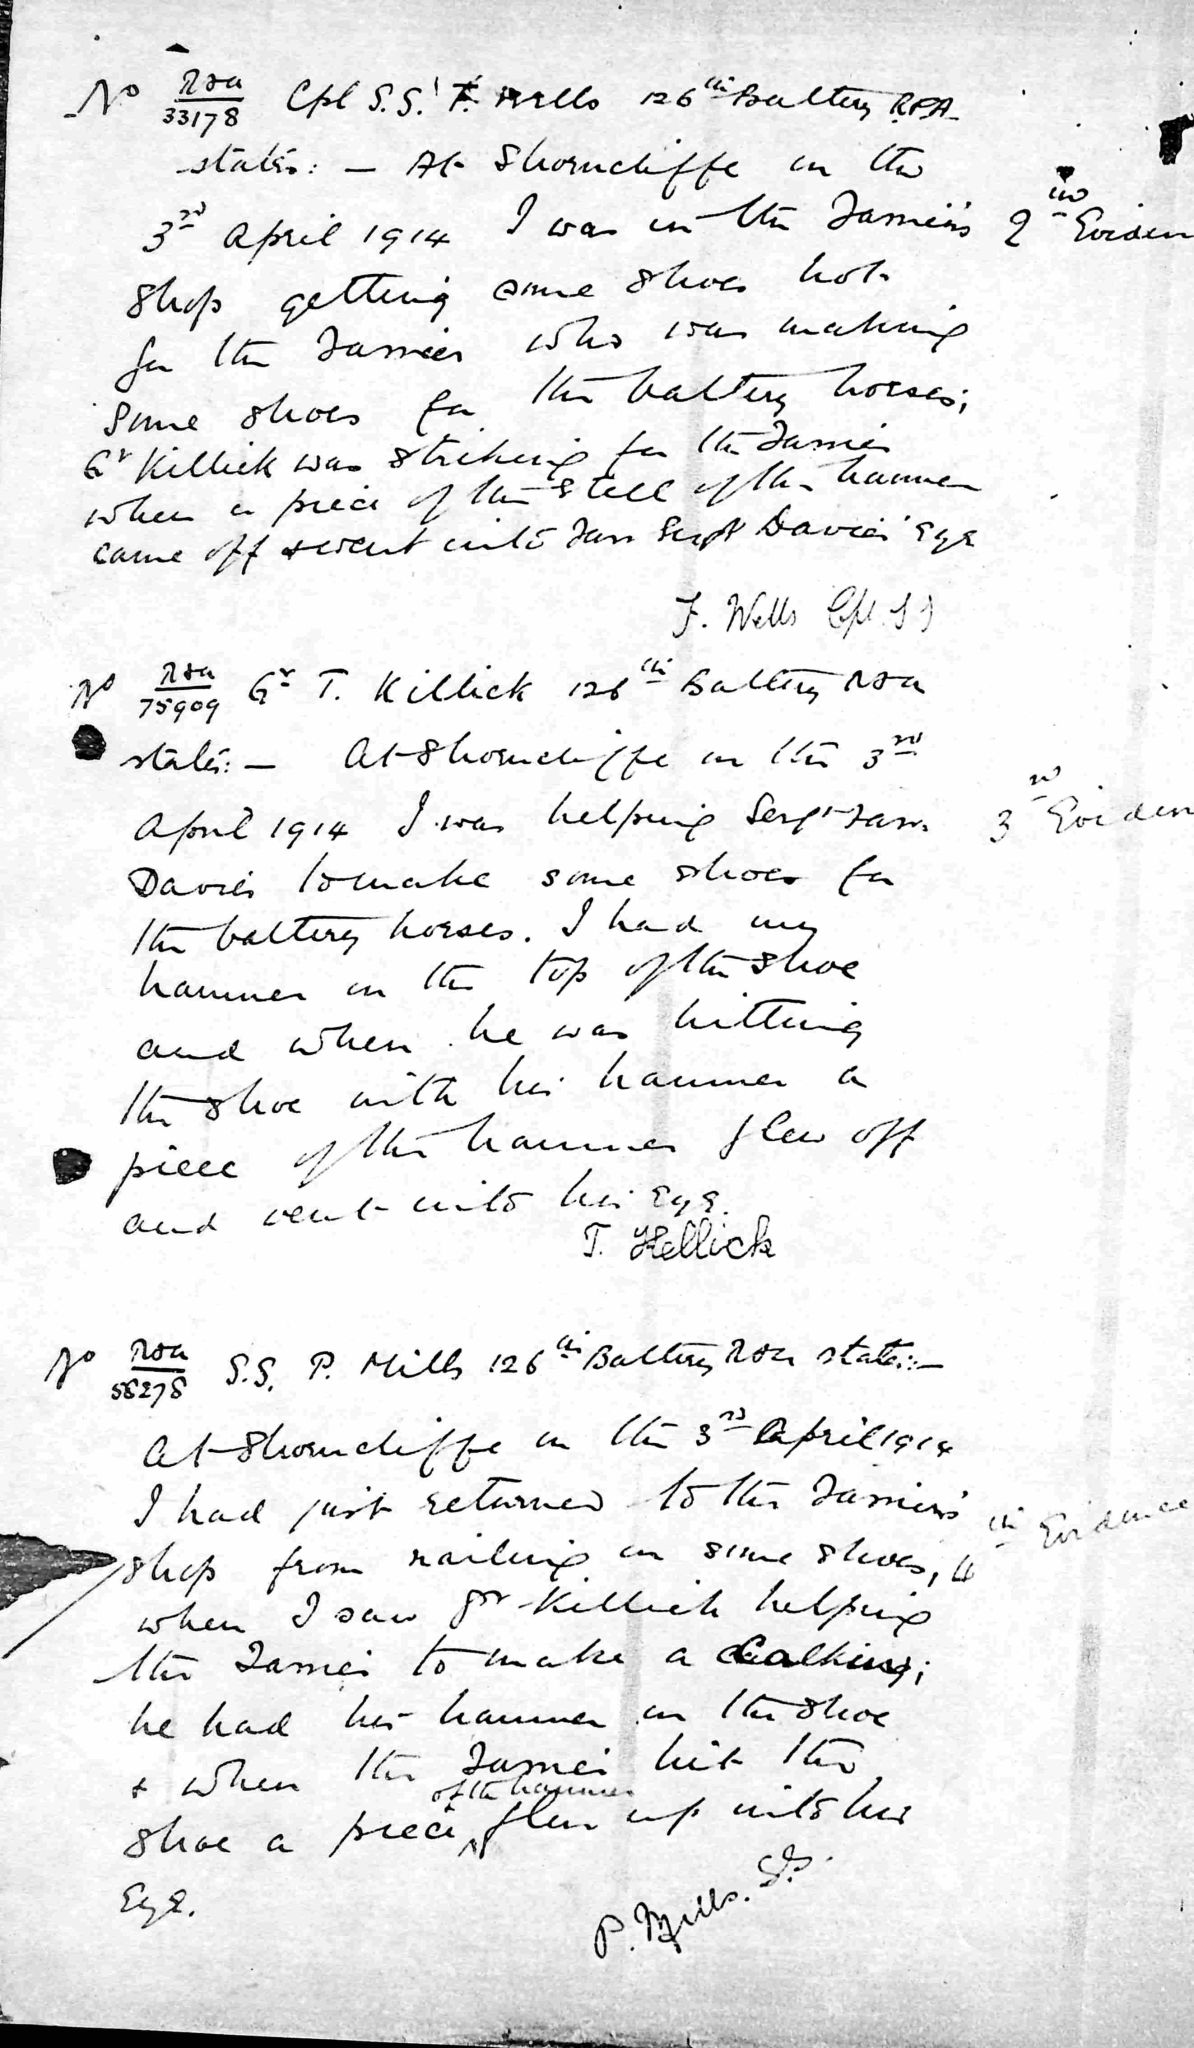 No RFA/33178 Cpl S.S. F. Wells 126th Battery RFA
states: — At Shorncliffe on the
3rd April 1914 I was in the Farrier's
2nd Eviden
shop getting some shoes hot
for the Farrier who was making
some shoes for the battery horses;
Gr Killick was striking for the Farrier
when a piece of the steel of the hammer
came off & went into Farr Sergt Davies' Eye
F. Wells Cpl. SS
No RFA/75909 Gr T. Killick 126th Battery RFA
states: — At Shorncliffe on the 3rd
April 1914 I was helping Sergt Farr.
3rd Eviden
Davies to make some shoes for
the battery horses. I had my
hammer on the top of the shoe
and when he was hitting
the shoe with his hammer a
piece of the hammer flew off
and went into his Eye.
T. Killick
No RFA/58278 S.S. P. Mills 126th Battery RFA states: —
At Shorncliffe on the 3rd April 1914
I had just returned to the Farrier's
4th Evidence
shop from nailing on some shoes,
when I saw Gr Killick helping
the Farrier to make a Calking;
he had his hammer on the shoe
& when the Farrier hit the
shoe a piece of the hammer flew up into his
Eye.
P. Mills. S.S.